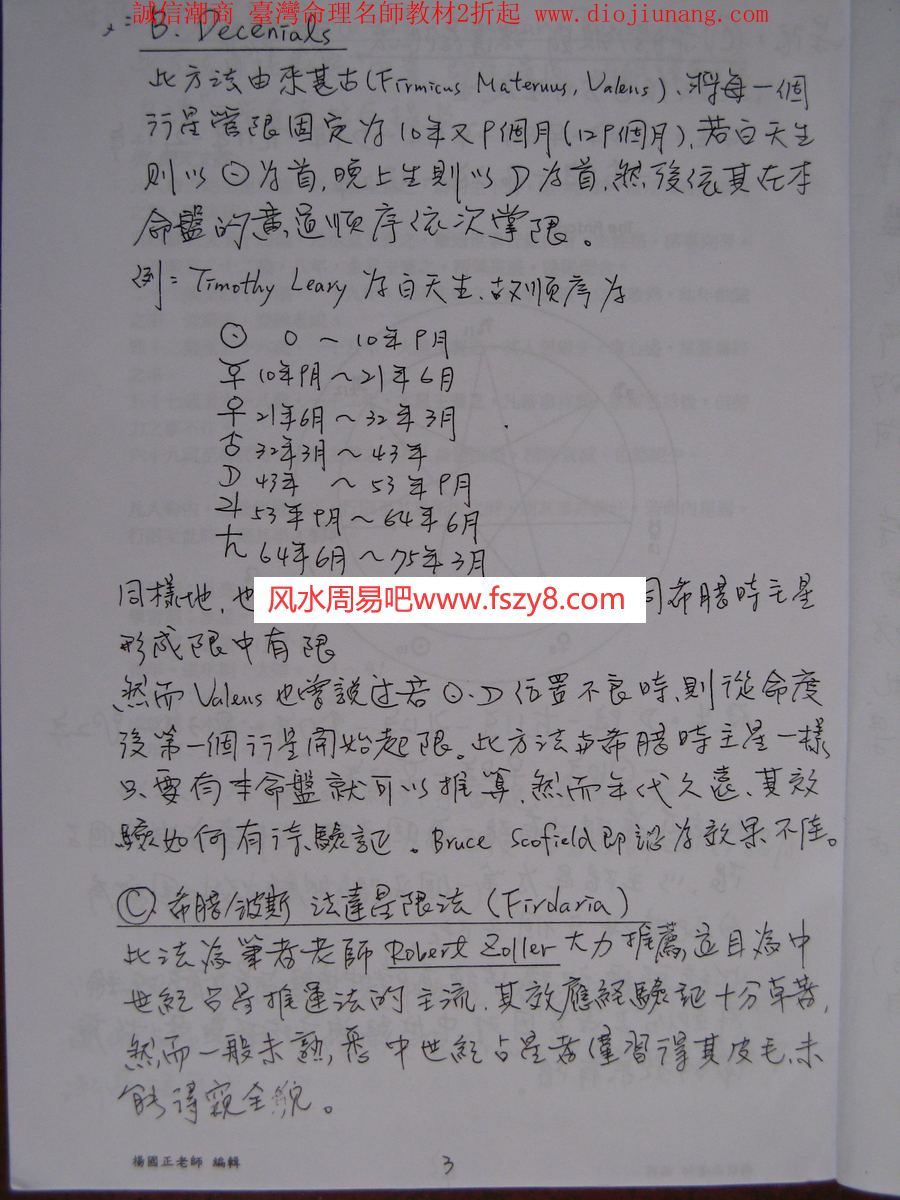 誠信潮商 臺灣命理名師教材2折起 www.diojiunang.com
B. Decenials
此方法由來甚古(Firmicus Maternus, Valens), 將每一個
行星管限固定为10年又9個月(129個月), 若白天生
則以☉为首, 晚上生則以☽为首, 然後依其在本
命盤的黃道順序依次掌限。
例: Timothy Leary 为白天生, 故順序为
☉ 0 ~ 10年9月
☿ 10年9月~21年6月
♀ 21年6月~32年3月
♂ 32年3月~43年
☽ 43年 ~53年9月
♃ 53年9月~64年6月
♄ 64年6月~75年3月
同樣地, 也 同希腊時主星
风水周易吧www.fszy8.com
形成限中有限
然而 Valens 也曾說过若☉、☽位置不良時, 則從命度
後第一個行星開始起限。此方法与希腊時主星一樣
只要有本命盤就可以推算, 然而年代久遠, 其效
驗如何有待驗証。Bruce Scofield即認为效果不佳。
Ⓒ 希腊/波斯 法達星限法 (Firdaria)
此法為筆者老師 Robert Zoller 大力推薦, 這目為中
世紀占星推運法的主流, 其效應経驗証十分卓著,
然而一般未熟悉中世紀占星者僅習得其皮毛, 未
能得窥全貌。
楊國正老師 編輯
3